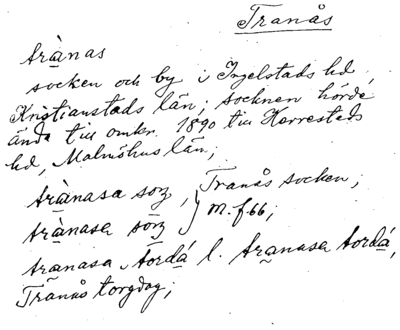 Tranås
trànas
socken och by i Ingelstads hd,
Kristianstads län; socknen hörde
ända till omkr. 1890 till Herrestads
hd, Malmöhus län;
trànasa sog, } Tranås socken;
trànasa sörg } m. f. 66;
tranasa tordá l. tranasa tordá,
Tranås torgdag;